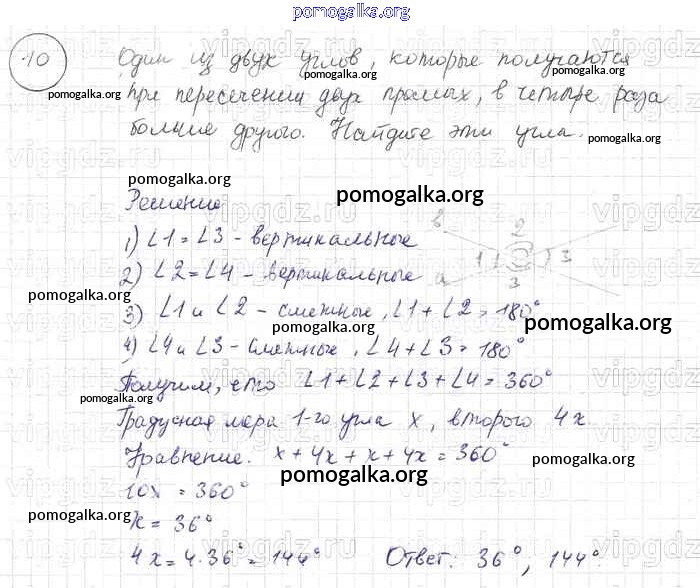 pomogalka.org
10
Один из двух углов, которые получаются
pomogalka.org pomogalka.org
pomogalka.org
при пересечении двух прямых, в четыре раза
больше другого. Найдите эти угла.
pomogalka.org
pomogalka.org
pomogalka.org
Решение
1) ∠1 = ∠3 - вертикальные
в 2
1 3
а 3
2) ∠2 = ∠4 - вертикальные
pomogalka.org
3) ∠1 и ∠2 - смежные, ∠1 + ∠2 = 180°
pomogalka.org pomogalka.org
4) ∠4 и ∠3 - смежные, ∠4 + ∠3 = 180°
Получим, что ∠1 + ∠2 + ∠3 + ∠4 = 360°
pomogalka.org
Градусная мера 1-го угла x, второго 4x.
Уравнение. x + 4x + x + 4x = 360°
pomogalka.org
pomogalka.org
10x = 360°
pomogalka.org
x = 36°
4x = 4·36° = 144° Ответ: 36°, 144°.
pomogalka.org
pomogalka.org